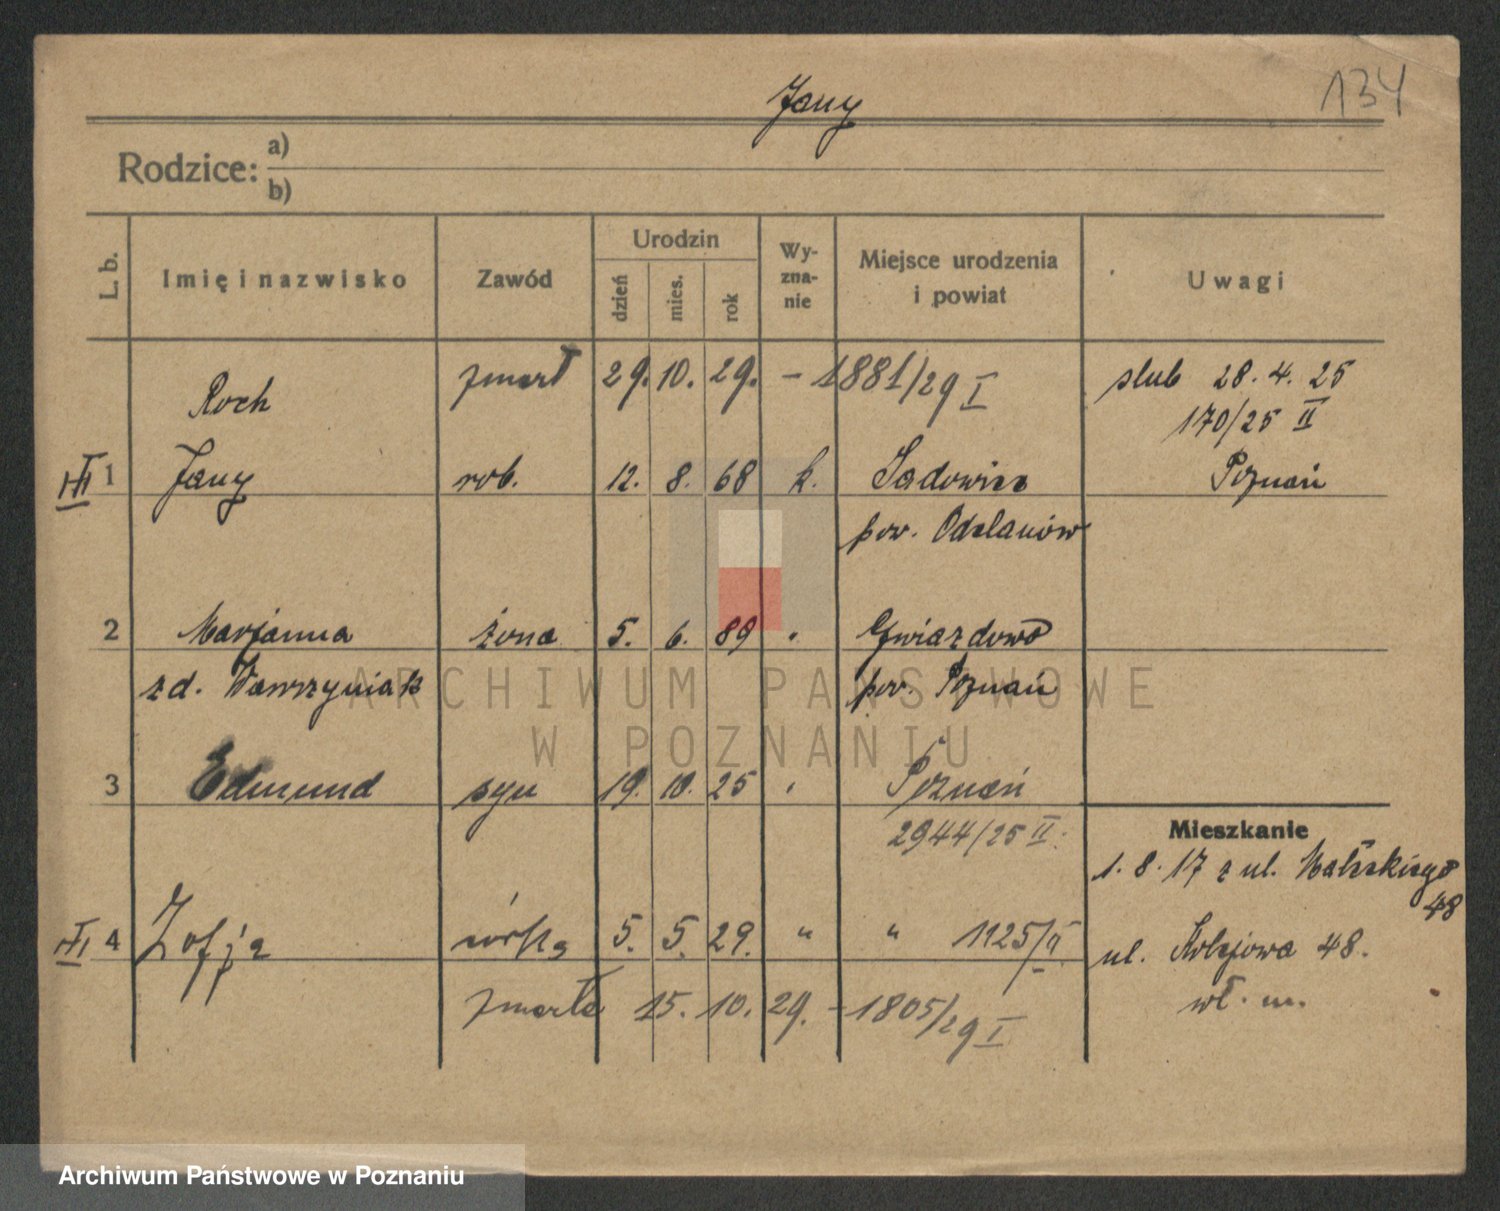 134
Jany
Rodzice: a)
b)
L. b. Imię i nazwisko Zawód Urodzin dzień mies. rok Wy-zna-nie Miejsce urodzenia i powiat Uwagi
zmarł 29. 10. 29. – 1881/29 I ślub 28. 4. 25
Roch 170/25 II
III 1 Jany rob. 12. 8. 68 k. Sadowice Poznań
pow. Odolanów
2 Marjanna żona 5. 6. 89 " Gwiazdowo
zd. Wawrzyniak pow. Poznań
3 Edmund syn 19. 10. 25 " Poznań
2944/25 II.
Mieszkanie
1. 8. 17 z ul.
48
III 4 Zofja córka 5. 5. 29. " " 1125/II ul. Kolejowa 48.
zmarła 15. 10. 29. – 1805/29 I wł. m.
ARCHIWUM PAŃSTWOWE
W POZNANIU
Archiwum Państwowe w Poznaniu